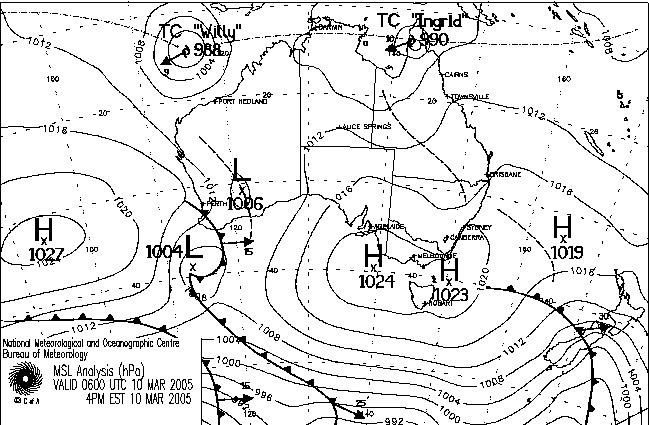 TC "Willy"
988
TC "Ingrid"
990
1012
1008
1004
DARWIN
CAIRNS
TOWNSVILLE
PORT HEDLAND
1012
ALICE SPRINGS
1012
1016
BRISBANE
L
1006
1016
1020
PERTH
H
1027
1004 L
ADELAIDE
H
1024
SYDNEY
CANBERRA
MELBOURNE
H
1023
HOBART
1020
H
1019
1016
1012
1008
1004
1000
996
992
1012
1008
1004
1000
National Meteorological and Oceanographic Centre
Bureau of Meteorology
MSL Analysis (hPa)
VALID 0600 UTC 10 MAR 2005
4PM EST 10 MAR 2005